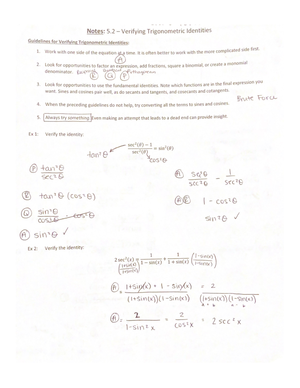 Notes: 5.2 – Verifying Trigonometric Identities
Guidelines for Verifying Trigonometric Identities:
1. Work with one side of the equation at a time. It is often better to work with the more complicated side first.
A
2. Look for opportunities to factor an expression, add fractions, square a binomial, or create a monomial
denominator.
E Q P
3. Look for opportunities to use the fundamental identities. Note which functions are in the final expression you
want. Sines and cosines pair well, as do secants and tangents, and cosecants and cotangents.
Brute Force
4. When the preceding guidelines do not help, try converting all the terms to sines and cosines.
5. Always try something. Even making an attempt that leads to a dead end can provide insight.
Ex 1: Verify the identity:
tan²θ ← sec²(θ) − 1 / sec²(θ) = sin²(θ)
cos²θ
P tan²θ / sec²θ
A sec²θ / sec²θ − 1 / sec²θ
R tan²θ (cos²θ)
A R 1 − cos²θ
Q sin²θ / cos²θ · cos²θ
sin²θ ✓
A sin²θ ✓
Ex 2: Verify the identity:
2 sec²(x) = 1 / 1 − sin(x) + 1 / 1 + sin(x) (1−sin(x)) / (1−sin(x))
(1+sin(x)) / (1+sin(x))
A 1+sin(x) + 1 − sin(x) / (1+sin(x))(1−sin(x)) = 2 / (1+sin(x))(1−sin(x))
A = 2 / 1−sin²x = 2 / cos²x = 2 sec²x ✓